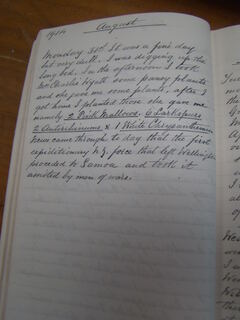 1914 August
Monday 31st It was a fine day
but very dull. I was digging up the
long bed. In the afternoon I took
Mrs Charles Hyatt some pansy plants
and she gave me some plants, after I
got home I planted those she gave me
namely 2 Pink Mallows, 6 Larkspurs,
2 Antirrhinums & 1 White Chrysanthemum
News came through to day that the first
expeditionary N.Z. force that left Wellington
proceeded to Samoa and took it
assisted by men of war.